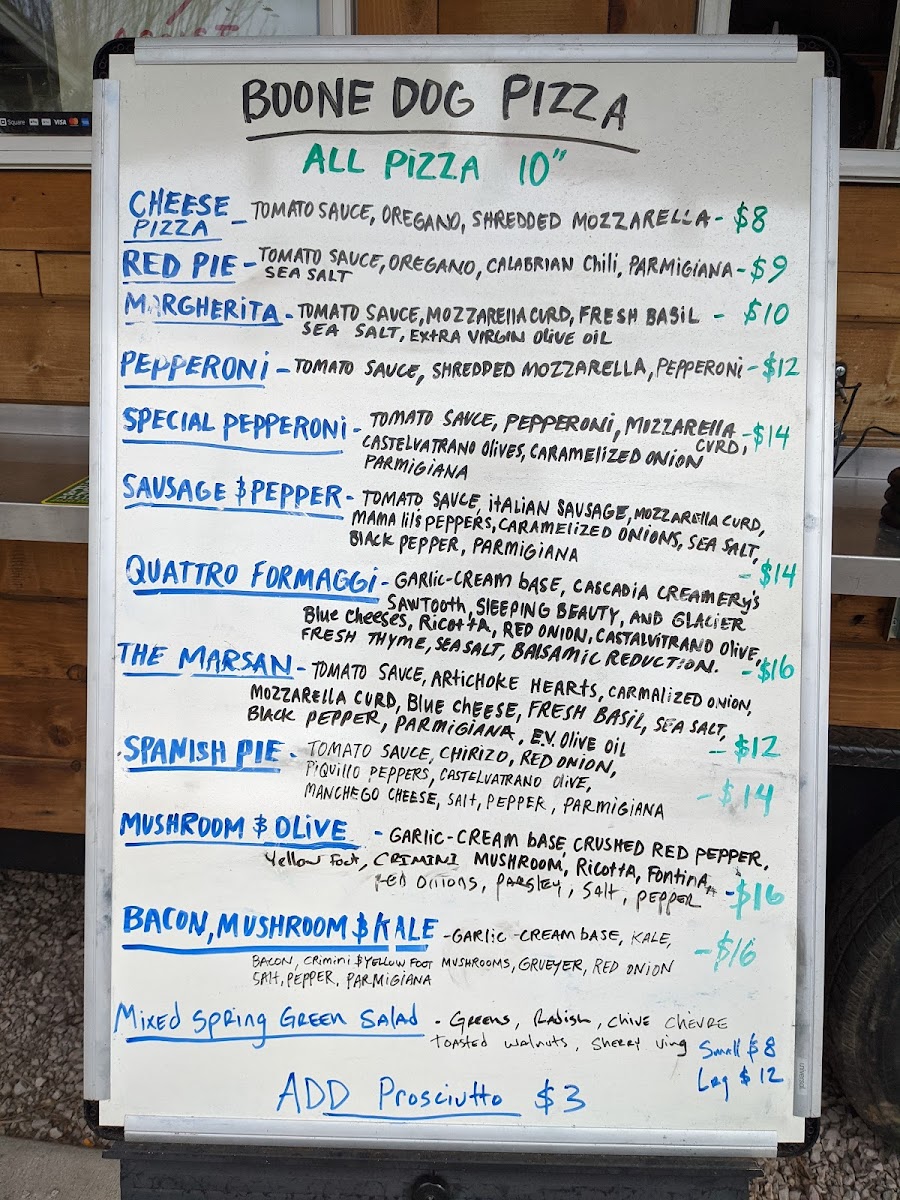 Square VISA
BOONE DOG PIZZA
ALL PIZZA 10"
CHEESE PIZZA - TOMATO SAUCE, OREGANO, SHREDDED MOZZARELLA - $8
RED PIE - TOMATO SAUCE, OREGANO, CALABRIAN CHILI, PARMIGIANA - $9
SEA SALT
MARGHERITA - TOMATO SAUCE, MOZZARELLA CURD, FRESH BASIL - $10
SEA SALT, EXTRA VIRGIN OLIVE OIL
PEPPERONI - TOMATO SAUCE, SHREDDED MOZZARELLA, PEPPERONI - $12
SPECIAL PEPPERONI - TOMATO SAUCE, PEPPERONI, MOZZARELLA CURD, - $14
CASTELVATRANO OLIVES, CARAMELIZED ONION
PARMIGIANA
SAUSAGE & PEPPER - TOMATO SAUCE, ITALIAN SAUSAGE, MOZZARELLA CURD,
MAMA LIL'S PEPPERS, CARAMELIZED ONIONS, SEA SALT,
BLACK PEPPER, PARMIGIANA - $14
QUATTRO FORMAGGI - GARLIC-CREAM BASE, CASCADIA CREAMERY'S
SAWTOOTH, SLEEPING BEAUTY, AND GLACIER
BLUE CHEESES, RICOTTA, RED ONION, CASTALVITRANO OLIVE,
FRESH THYME, SEA SALT, BALSAMIC REDUCTION. - $16
THE MARSAN - TOMATO SAUCE, ARTICHOKE HEARTS, CARMALIZED ONION,
MOZZARELLA CURD, BLUE CHEESE, FRESH BASIL, SEA SALT,
BLACK PEPPER, PARMIGIANA, E.V. OLIVE OIL - $12
SPANISH PIE - TOMATO SAUCE, CHIRIZO, RED ONION,
PIQUILLO PEPPERS, CASTELVATRANO OLIVE,
MANCHEGO CHEESE, SALT, PEPPER, PARMIGIANA - $14
MUSHROOM & OLIVE - GARLIC-CREAM BASE, CRUSHED RED PEPPER,
YELLOW FOOT, CRIMINI MUSHROOM, RICOTTA, FONTINA,
RED ONIONS, PARSLEY, SALT, PEPPER - $16
BACON, MUSHROOM & KALE - GARLIC-CREAM BASE, KALE, - $16
BACON, CRIMINI & YELLOW FOOT MUSHROOMS, GRUEYER, RED ONION
SALT, PEPPER, PARMIGIANA
Mixed Spring Green Salad - Greens, Radish, Chive Chevre
Toasted walnuts, Sherry Ving Small $8
Lag $12
ADD Prosciutto $3